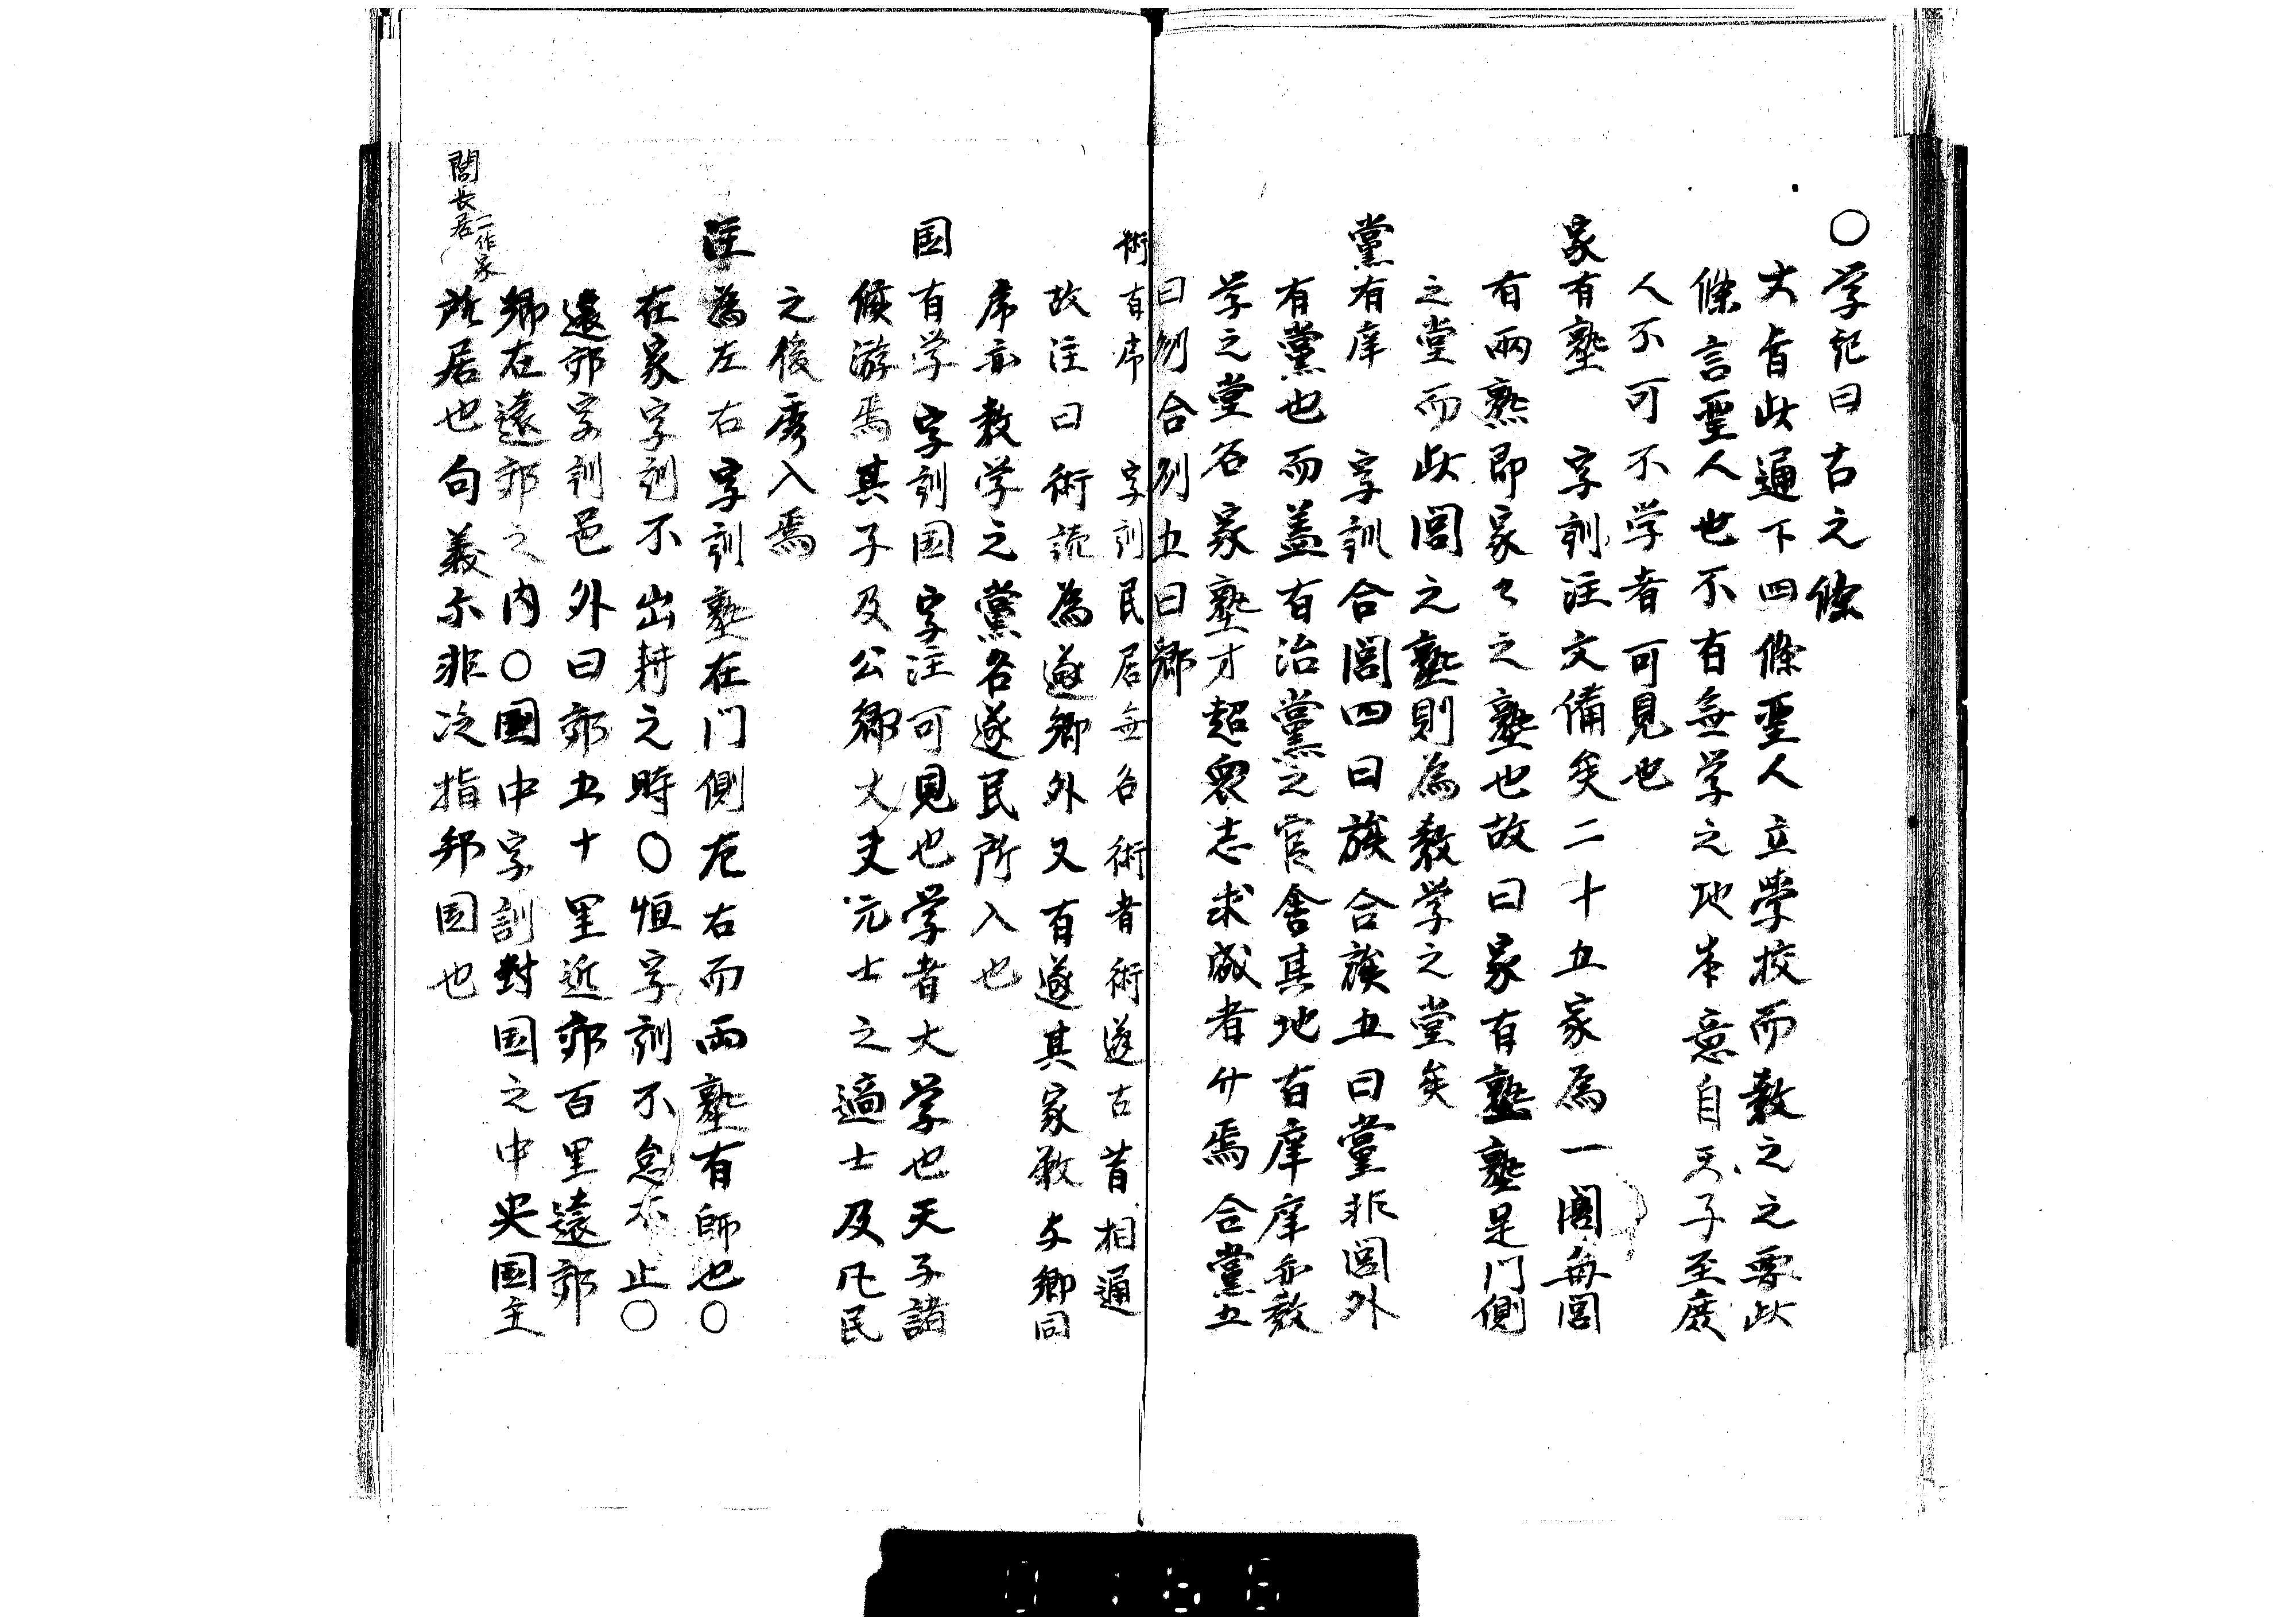 ○学記曰古之條
大旨此通下四條聖人立學挍而教之之要此
條言聖人也不有無学之地本意自天子至庶
人不可不学者可見也
家有塾 字訓注文備矣二十五家為一閭毎閭
有兩熟即家々之塾也故曰家有塾塾是门側
之堂而此閭之塾則為教学之堂矣
黨有庠 字訓合閭四曰族合族五曰黨非閭外
有黨也而盖有治黨之官舎其地有庠庠亦教
学之堂名家塾才超衆志求成者升焉合黨五
曰州合州五曰郷
術有序 字訓民居無名術者術遂古昔相通
故注曰術読為遂郷外又有遂其家数与郷同
序亦教学之黨名遂民所入也
国有学 字訓国字注可見也学者大学也天子諸
候游焉其子及公卿大夫元士之適士及凡民
之俊秀入焉
注為左右字訓塾在门側左右而兩塾有師也○
在家字訓不出耕之時○恒字訓不怠不止○
遠郊字訓邑外曰郊五十里近郊百里遠郊
郷在遠郊之内○國中字訓對国之中央国主
所居也句義示非泛指邦国也
閭長居一作家